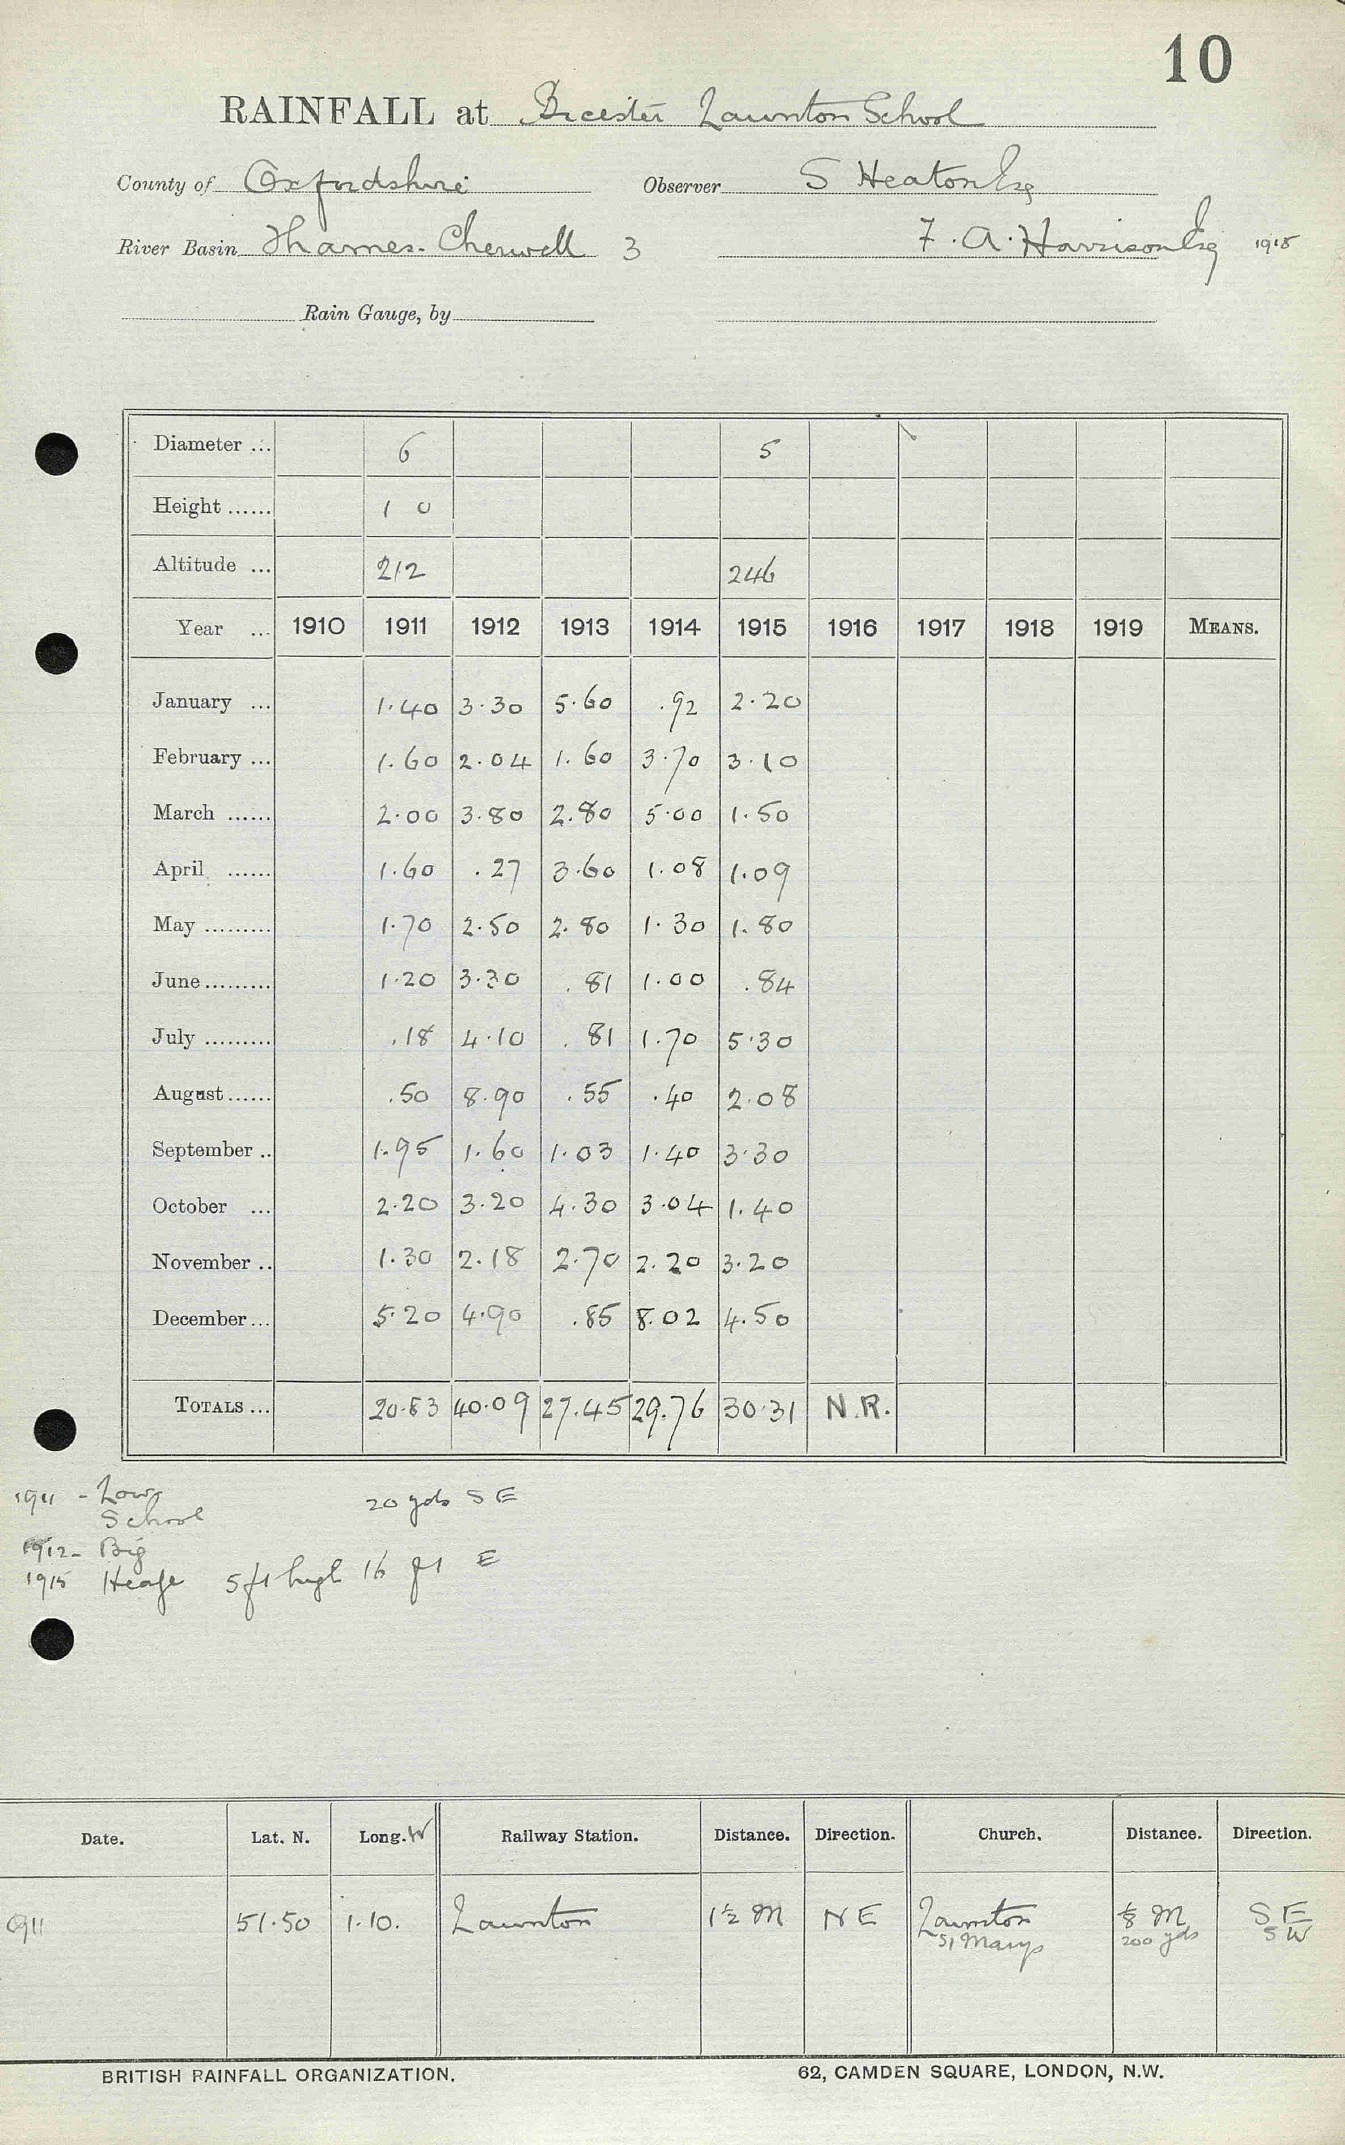 10
RAINFALL at Bicester Launton School
County of Oxfordshire Observer S Heaton Esq
River Basin Thames. Cherwell 3 F. A. Harrison Esq 1915
Rain Gauge, by
Diameter ... 6 5
Height ...... 1 0
Altitude ... 212 246
Year ... 1910 1911 1912 1913 1914 1915 1916 1917 1918 1919 MEANS.
January ... 1.40 3.30 5.60 .92 2.20
February ... 1.60 2.04 1.60 3.70 3.10
March ...... 2.00 3.80 2.80 5.00 1.50
April ...... 1.60 .27 3.60 1.08 1.09
May ......... 1.70 2.50 2.80 1.30 1.80
June ......... 1.20 3.30 .81 1.00 .84
July ......... .18 4.10 .81 1.70 5.30
August ...... .50 8.90 .55 .40 2.08
September .. 1.95 1.60 1.03 1.40 3.30
October ... 2.20 3.20 4.30 3.04 1.40
November .. 1.30 2.18 2.70 2.20 3.20
December ... 5.20 4.90 .85 8.02 4.50
TOTALS ... 20.83 40.09 27.45 29.76 30.31 N.R.
1911 - Low
School 20 yds S E
1912 - Big
1915 5 ft high 16 ft E
Date. Lat. N. Long. W Railway Station. Distance. Direction. Church. Distance. Direction.
1911 51.50 1.10. Launton 1½ M N E Launton ⅛ M S E
St Marys 200 yds S W
BRITISH RAINFALL ORGANIZATION. 62, CAMDEN SQUARE, LONDON, N.W.